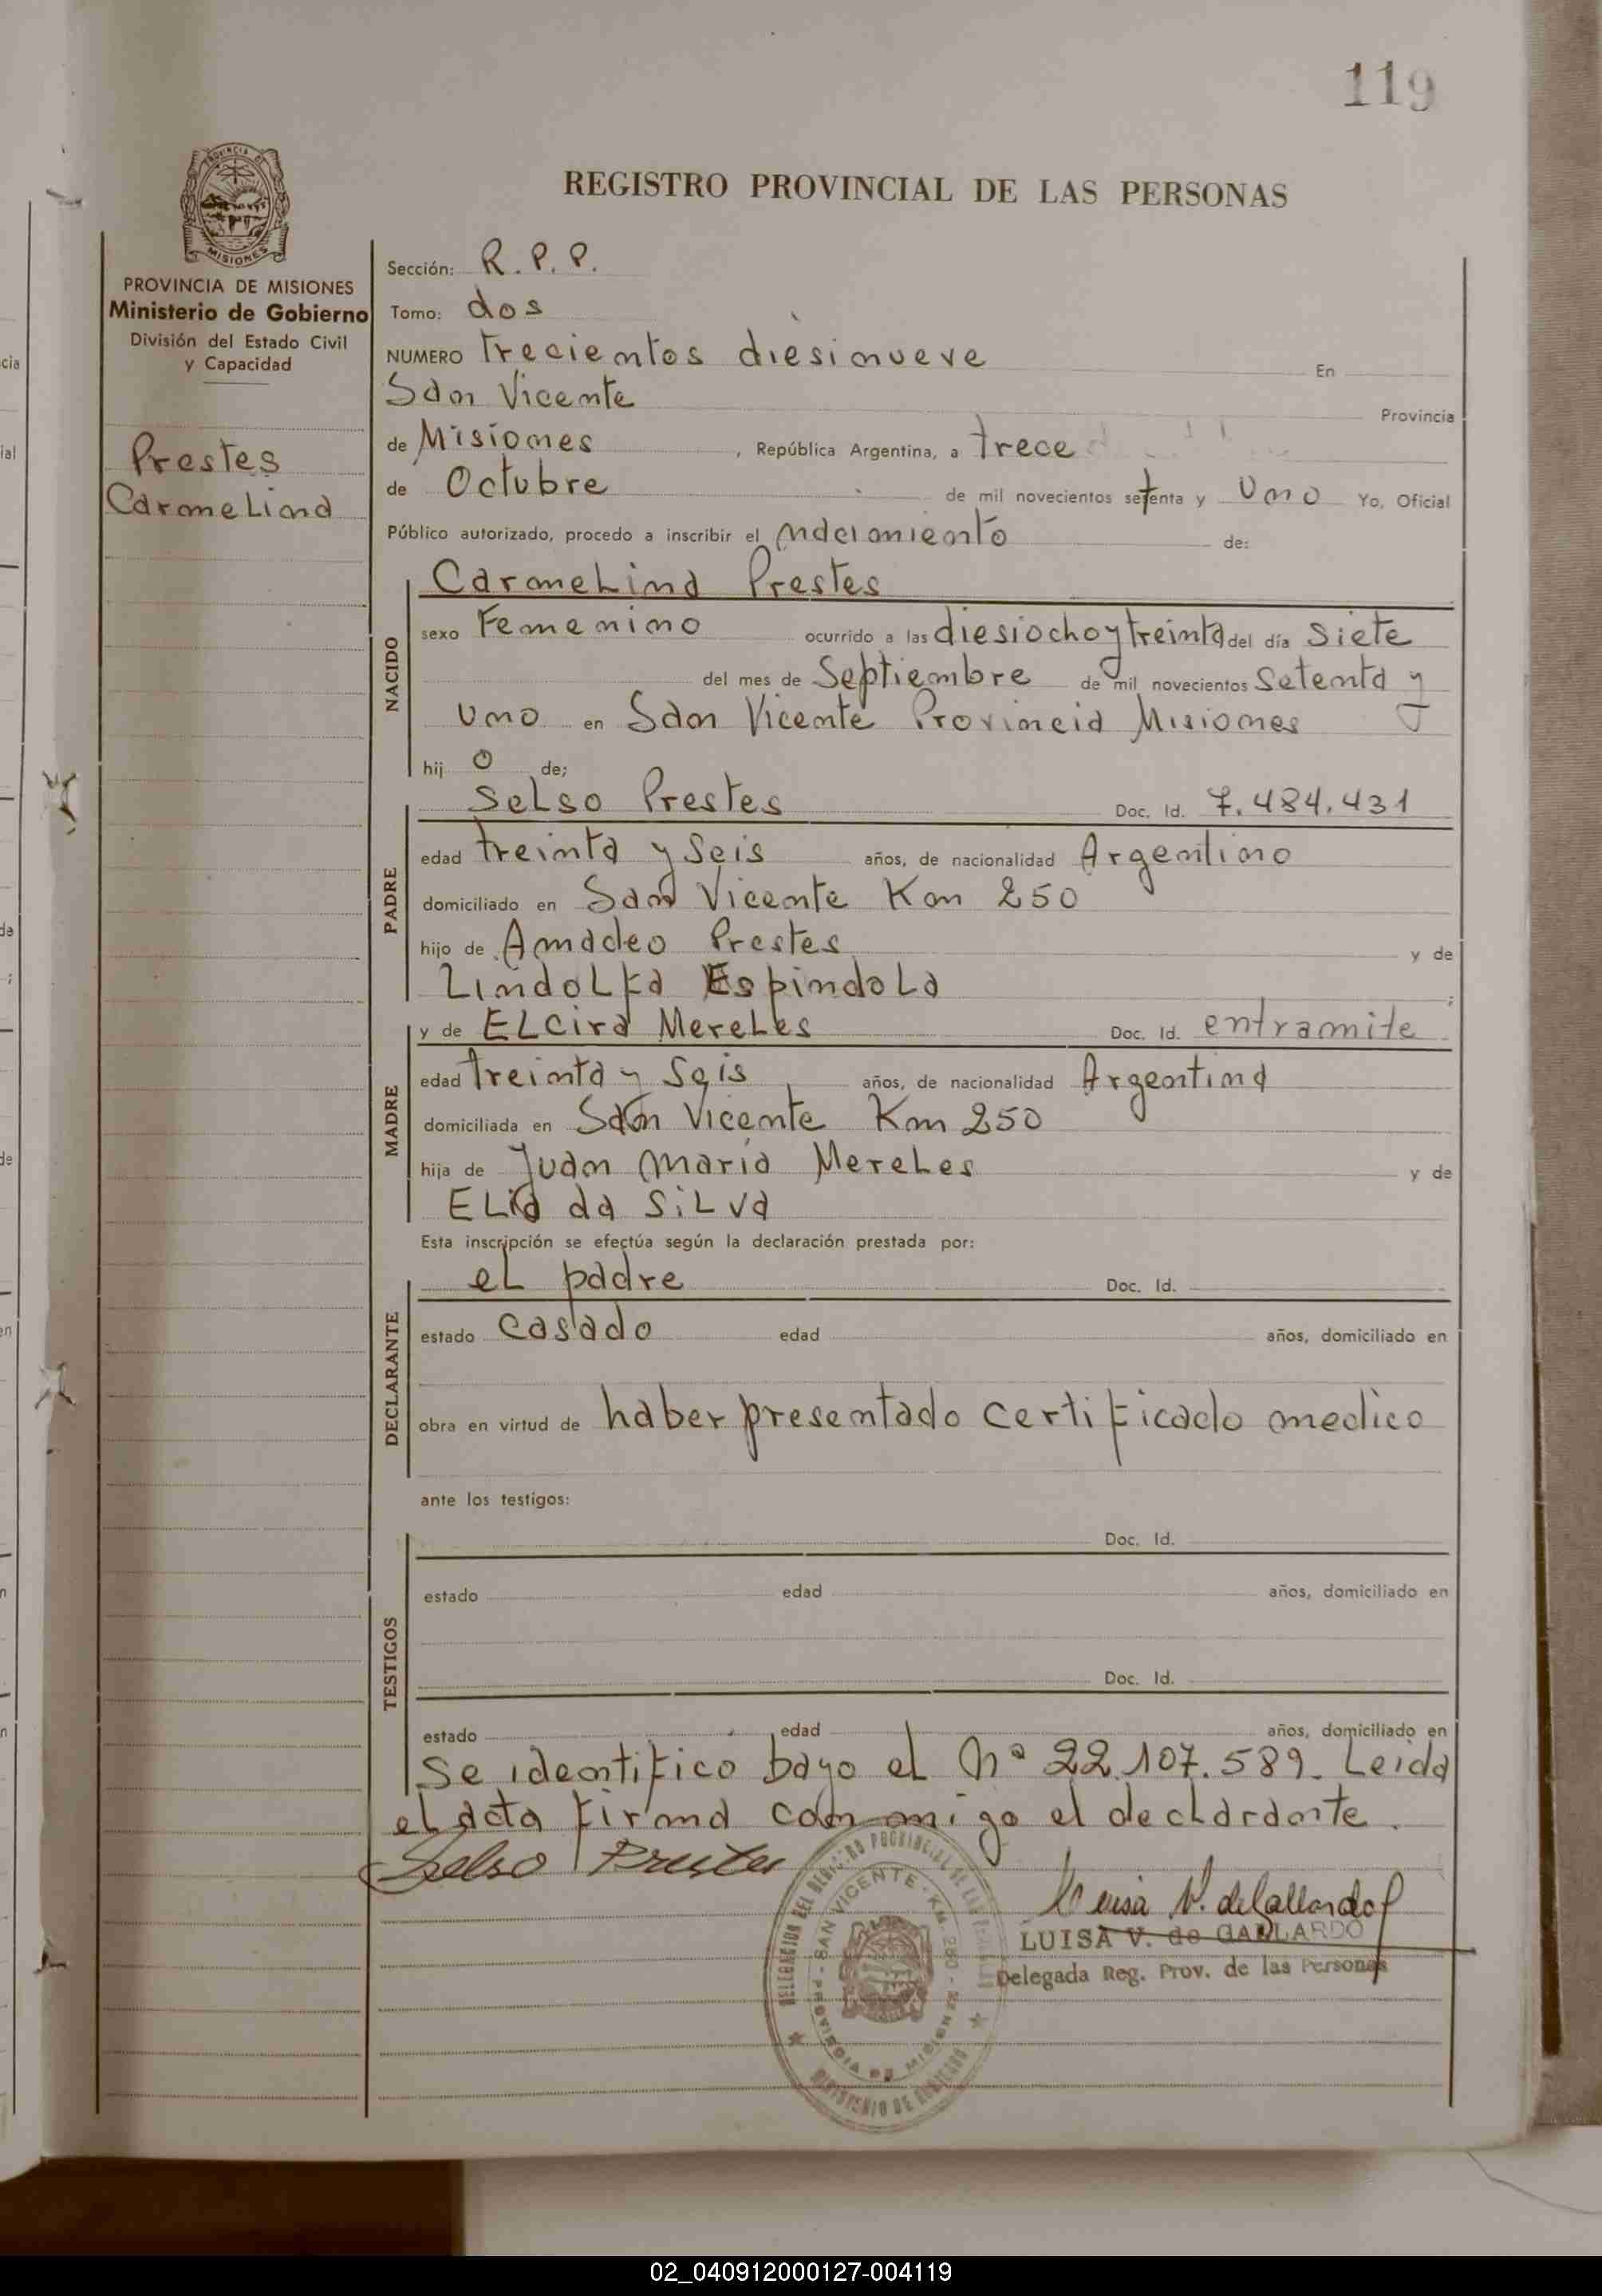 119
REGISTRO PROVINCIAL DE LAS PERSONAS
PROVINCIA DE MISIONES
PROVINCIA DE MISIONES
Ministerio de Gobierno
División del Estado Civil
y Capacidad
Prestes
CarmeLina
Sección: R. P. P.
Tomo: dos
NUMERO Trecientos diesinueve En
San Vicente Provincia
de Misiones, República Argentina, a trece
de Octubre de mil novecientos setenta y Uno Yo, Oficial
Público autorizado, procedo a inscribir el nacimiento de:
NACIDO
CarmeLina Prestes
sexo Femenino ocurrido a las diesiocho y treinta del día Siete
del mes de Septiembre de mil novecientos Setenta y
Uno en San Vicente Provincia Misiones
hij o de;
PADRE
SeLso Prestes Doc. Id. 7.484.431
edad treinta y Seis años, de nacionalidad Argentino
domiciliado en San Vicente Km 250
hijo de Amadeo Prestes y de
LindoLfa EspindoLa ;
MADRE
y de ELcira MereLes Doc. Id. entramite
edad Treinta y Seis años, de nacionalidad Argentina
domiciliada en San Vicente Km 250
hija de Juan Maria MereLes y de
ELia da SiLva
Esta inscripción se efectúa según la declaración prestada por:
DECLARANTE
eL padre Doc. Id.
estado Casado edad años, domiciliado en
obra en virtud de haber presentado certificado medico
ante los testigos:
TESTIGOS
Doc. Id.
estado edad años, domiciliado en
Doc. Id.
estado edad años, domiciliado en
Se identificó bayo el Nº 22.107.589. Leida
el acta firma conmigo el decLarante.
Selso Prestes
Luisa V. de Gallardo
LUISA V. de GALLARDO
Delegada Reg. Prov. de las Personas
DELEGACION DEL REGISTRO PROVINCIAL DE LAS PERSONAS
SAN VICENTE - KM. 260 - MISIONES - PROVINCIA DE MISIONES
MINISTERIO DE GOBIERNO
02_040912000127-004119